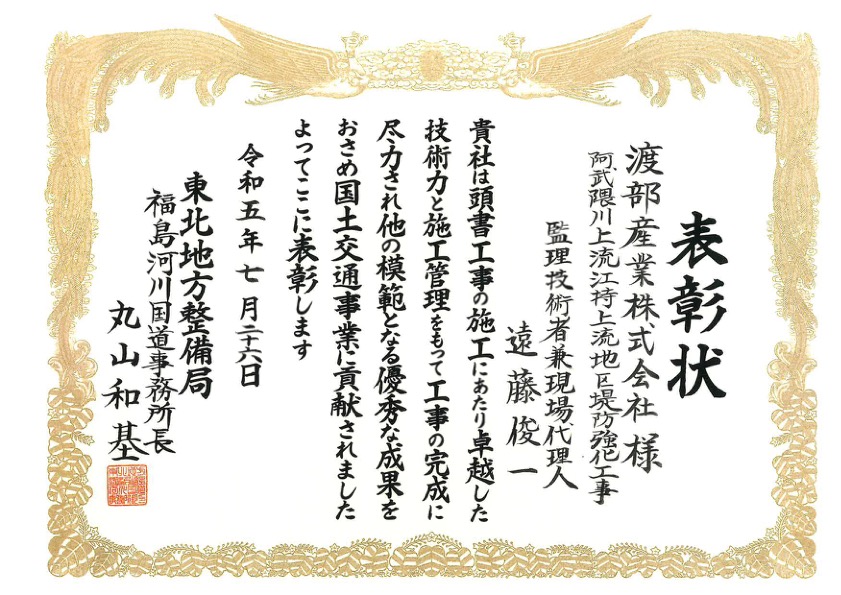 表彰状
渡部産業株式会社 様
阿武隈川上流江持上流地区堤防強化工事
監理技術者兼現場代理人
遠藤俊一
貴社は頭書工事の施工にあたり卓越した
技術力と施工管理をもって工事の完成に
尽力され他の模範となる優秀な成果を
おさめ国土交通事業に貢献されました
よってここに表彰します
令和五年七月二十六日
東北地方整備局
福島河川国道事務所長
丸山和基